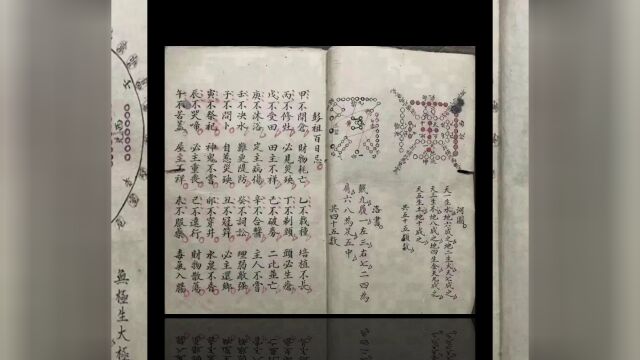 河圖
天一生水地六成之地二生火天七成之
天三生木地八成之地四生金天九成之
天五生土地十成之
共五十五顆數
洛書
戴九履一左三右七二四為
肩六八為足五中
共四十五數
彭祖百日忌
甲不開倉 財物耗亡 乙不栽種 培植不長
丙不修灶 必見災殃 丁不剃頭 頭必生瘡
戊不受田 田主不祥 己不破券 二比並亡
庚不 定主病傷 辛不合醬 主人不嘗
壬不决水 難更隄防 癸不詞訟 理弱敵強
子不問卜 自惹災殃 丑不冠 必主還鄉
寅不祭祀 神鬼不嘗 卯不穿井 水泉不香
辰不哭泣 必主重喪 巳不遠行 財物
午不苫蓋 屋主不祥 未不服藥 毒氣入腸
無極生太極